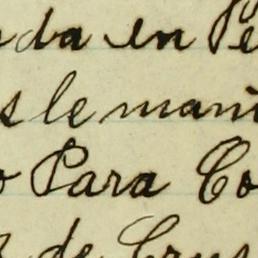 da en Pe
s le mani
o Para Co
de Crus